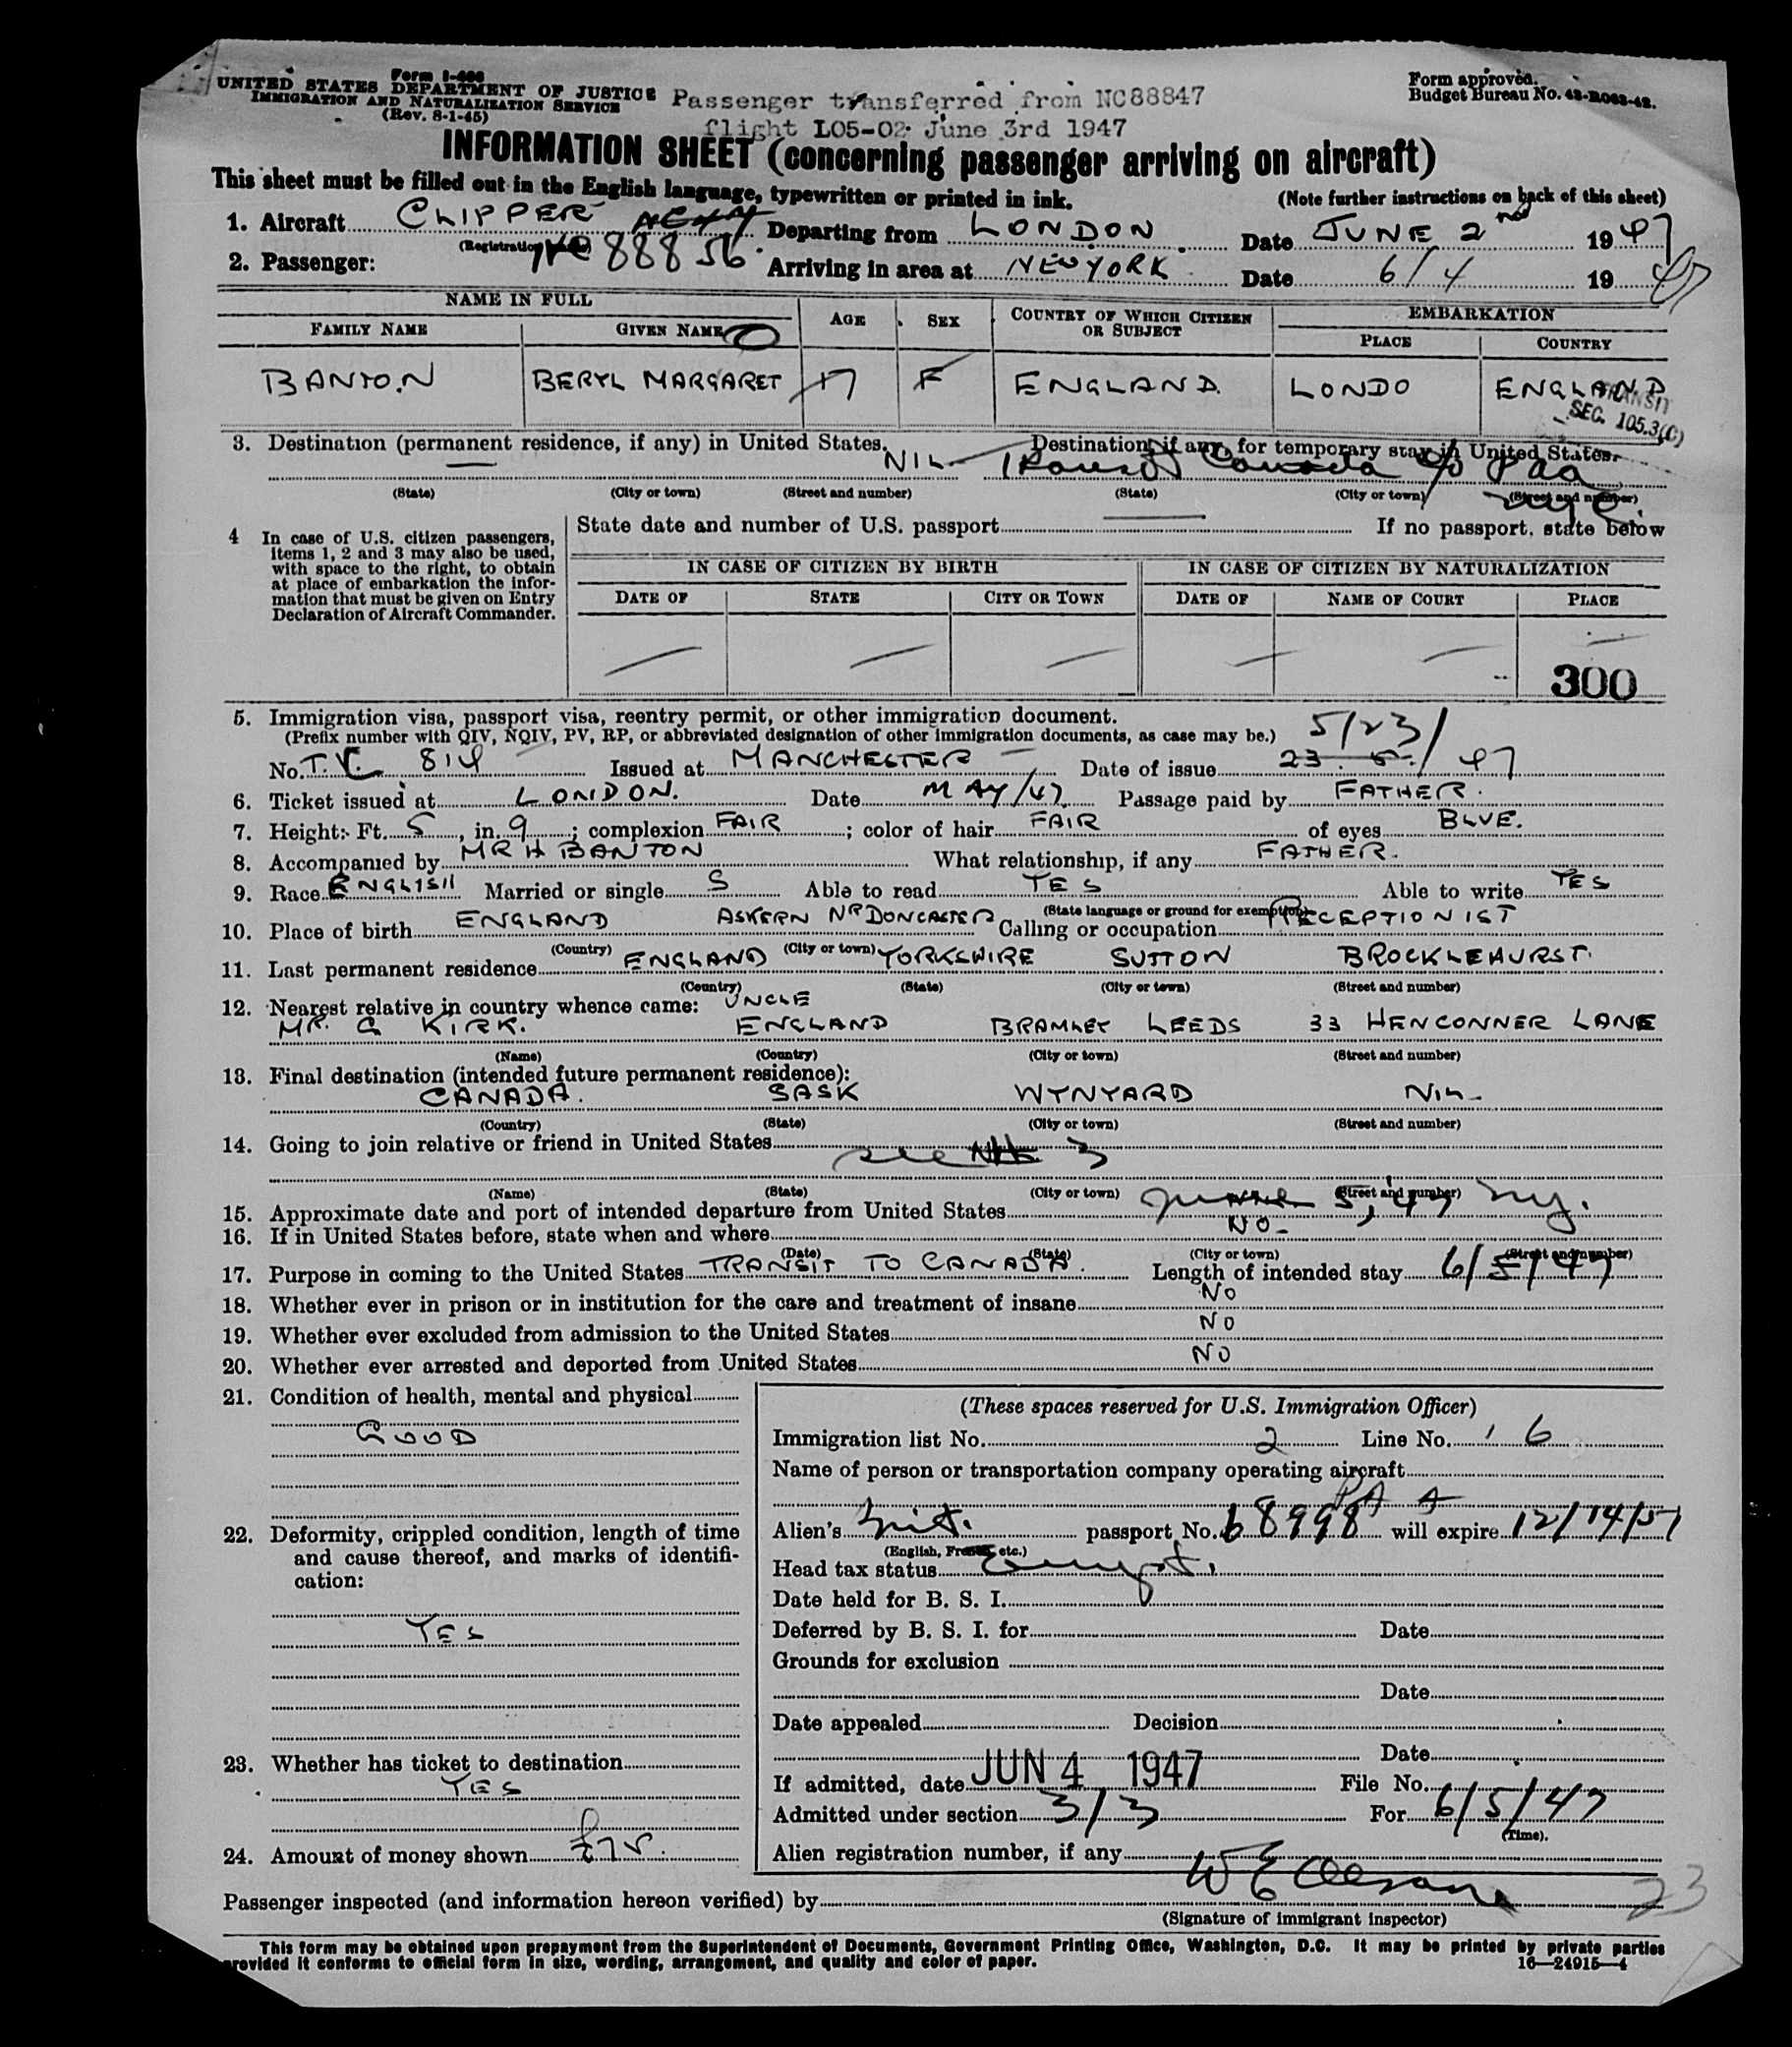 Form I-466
UNITED STATES DEPARTMENT OF JUSTICE
IMMIGRATION AND NATURALIZATION SERVICE
(Rev. 8-1-45)
Passenger transferred from NC88847
flight L05-02 June 3rd 1947
Form approved.
Budget Bureau No. 43-R063-42.
INFORMATION SHEET (concerning passenger arriving on aircraft)
This sheet must be filled out in the English language, typewritten or printed in ink. (Note further instructions on back of this sheet)
1. Aircraft CLIPPER Departing from LONDON Date JUNE 2nd 1947
(Registration 88856
2. Passenger: Arriving in area at NEW YORK Date 6/4 1947
NAME IN FULL AGE SEX COUNTRY OF WHICH CITIZEN OR SUBJECT EMBARKATION
FAMILY NAME GIVEN NAME PLACE COUNTRY
BANTON BERYL MARGARET 17 F ENGLAND LONDO ENGLAND
TRANSIT
SEC. 105.3(C)
3. Destination (permanent residence, if any) in United States. Destination, if any, for temporary stay in United States.
NIL Transit Canada c/o Paa
(State) (City or town) (Street and number) (State) (City or town) (Street and number)
nyc.
4 In case of U.S. citizen passengers, items 1, 2 and 3 may also be used, with space to the right, to obtain at place of embarkation the information that must be given on Entry Declaration of Aircraft Commander.
State date and number of U.S. passport If no passport, state below
IN CASE OF CITIZEN BY BIRTH IN CASE OF CITIZEN BY NATURALIZATION
DATE OF STATE CITY OR TOWN DATE OF NAME OF COURT PLACE
300
5. Immigration visa, passport visa, reentry permit, or other immigration document.
(Prefix number with QIV, NQIV, PV, RP, or abbreviated designation of other immigration documents, as case may be.) 5/23/
No. T.V. 814 Issued at MANCHESTER Date of issue 23. 5. / 47
6. Ticket issued at LONDON. Date MAY/47 Passage paid by FATHER.
7. Height: Ft. 5, in. 9; complexion FAIR; color of hair FAIR of eyes BLUE.
8. Accompanied by MR H BANTON What relationship, if any FATHER.
9. Race ENGLISH Married or single S Able to read YES Able to write YES
(State language or ground for exemption)
10. Place of birth ENGLAND ASKERN NR DONCASTER Calling or occupation RECEPTIONIST
(Country) (City or town)
11. Last permanent residence ENGLAND YORKSHIRE SUTTON BROCKLEHURST.
(Country) (State) (City or town) (Street and number)
12. Nearest relative in country whence came: UNCLE
MR. G KIRK. ENGLAND BRAMLEY LEEDS 33 HENCONNER LANE
(Name) (Country) (City or town) (Street and number)
13. Final destination (intended future permanent residence):
CANADA. SASK WYNYARD NIL
(Country) (State) (City or town) (Street and number)
14. Going to join relative or friend in United States
see 3
(Name) (State) (City or town) (Street and number)
15. Approximate date and port of intended departure from United States June 5, 47 ny.
16. If in United States before, state when and where NO
(Date) (State) (City or town) (Street and number)
17. Purpose in coming to the United States TRANSIT TO CANADA. Length of intended stay 6/5/47
18. Whether ever in prison or in institution for the care and treatment of insane NO
19. Whether ever excluded from admission to the United States NO
20. Whether ever arrested and deported from United States NO
21. Condition of health, mental and physical
GOOD
22. Deformity, crippled condition, length of time and cause thereof, and marks of identification:
YES
23. Whether has ticket to destination
YES
24. Amount of money shown £75.
(These spaces reserved for U.S. Immigration Officer)
Immigration list No. 2 Line No. 6
Name of person or transportation company operating aircraft
PAA
Alien's Brit. passport No. 68998 will expire 12/14/51
(English, French, etc.)
Head tax status Exempt.
Date held for B. S. I.
Deferred by B. S. I. for Date
Grounds for exclusion
Date
Date appealed Decision
Date
If admitted, date JUN 4 1947 File No.
Admitted under section 3/3 For 6/5/47
(Time).
Alien registration number, if any
Passenger inspected (and information hereon verified) by
(Signature of immigrant inspector)
23
This form may be obtained upon prepayment from the Superintendent of Documents, Government Printing Office, Washington, D.C. It may be printed by private parties
provided it conforms to official form in size, wording, arrangement, and quality and color of paper. 16—24915—4